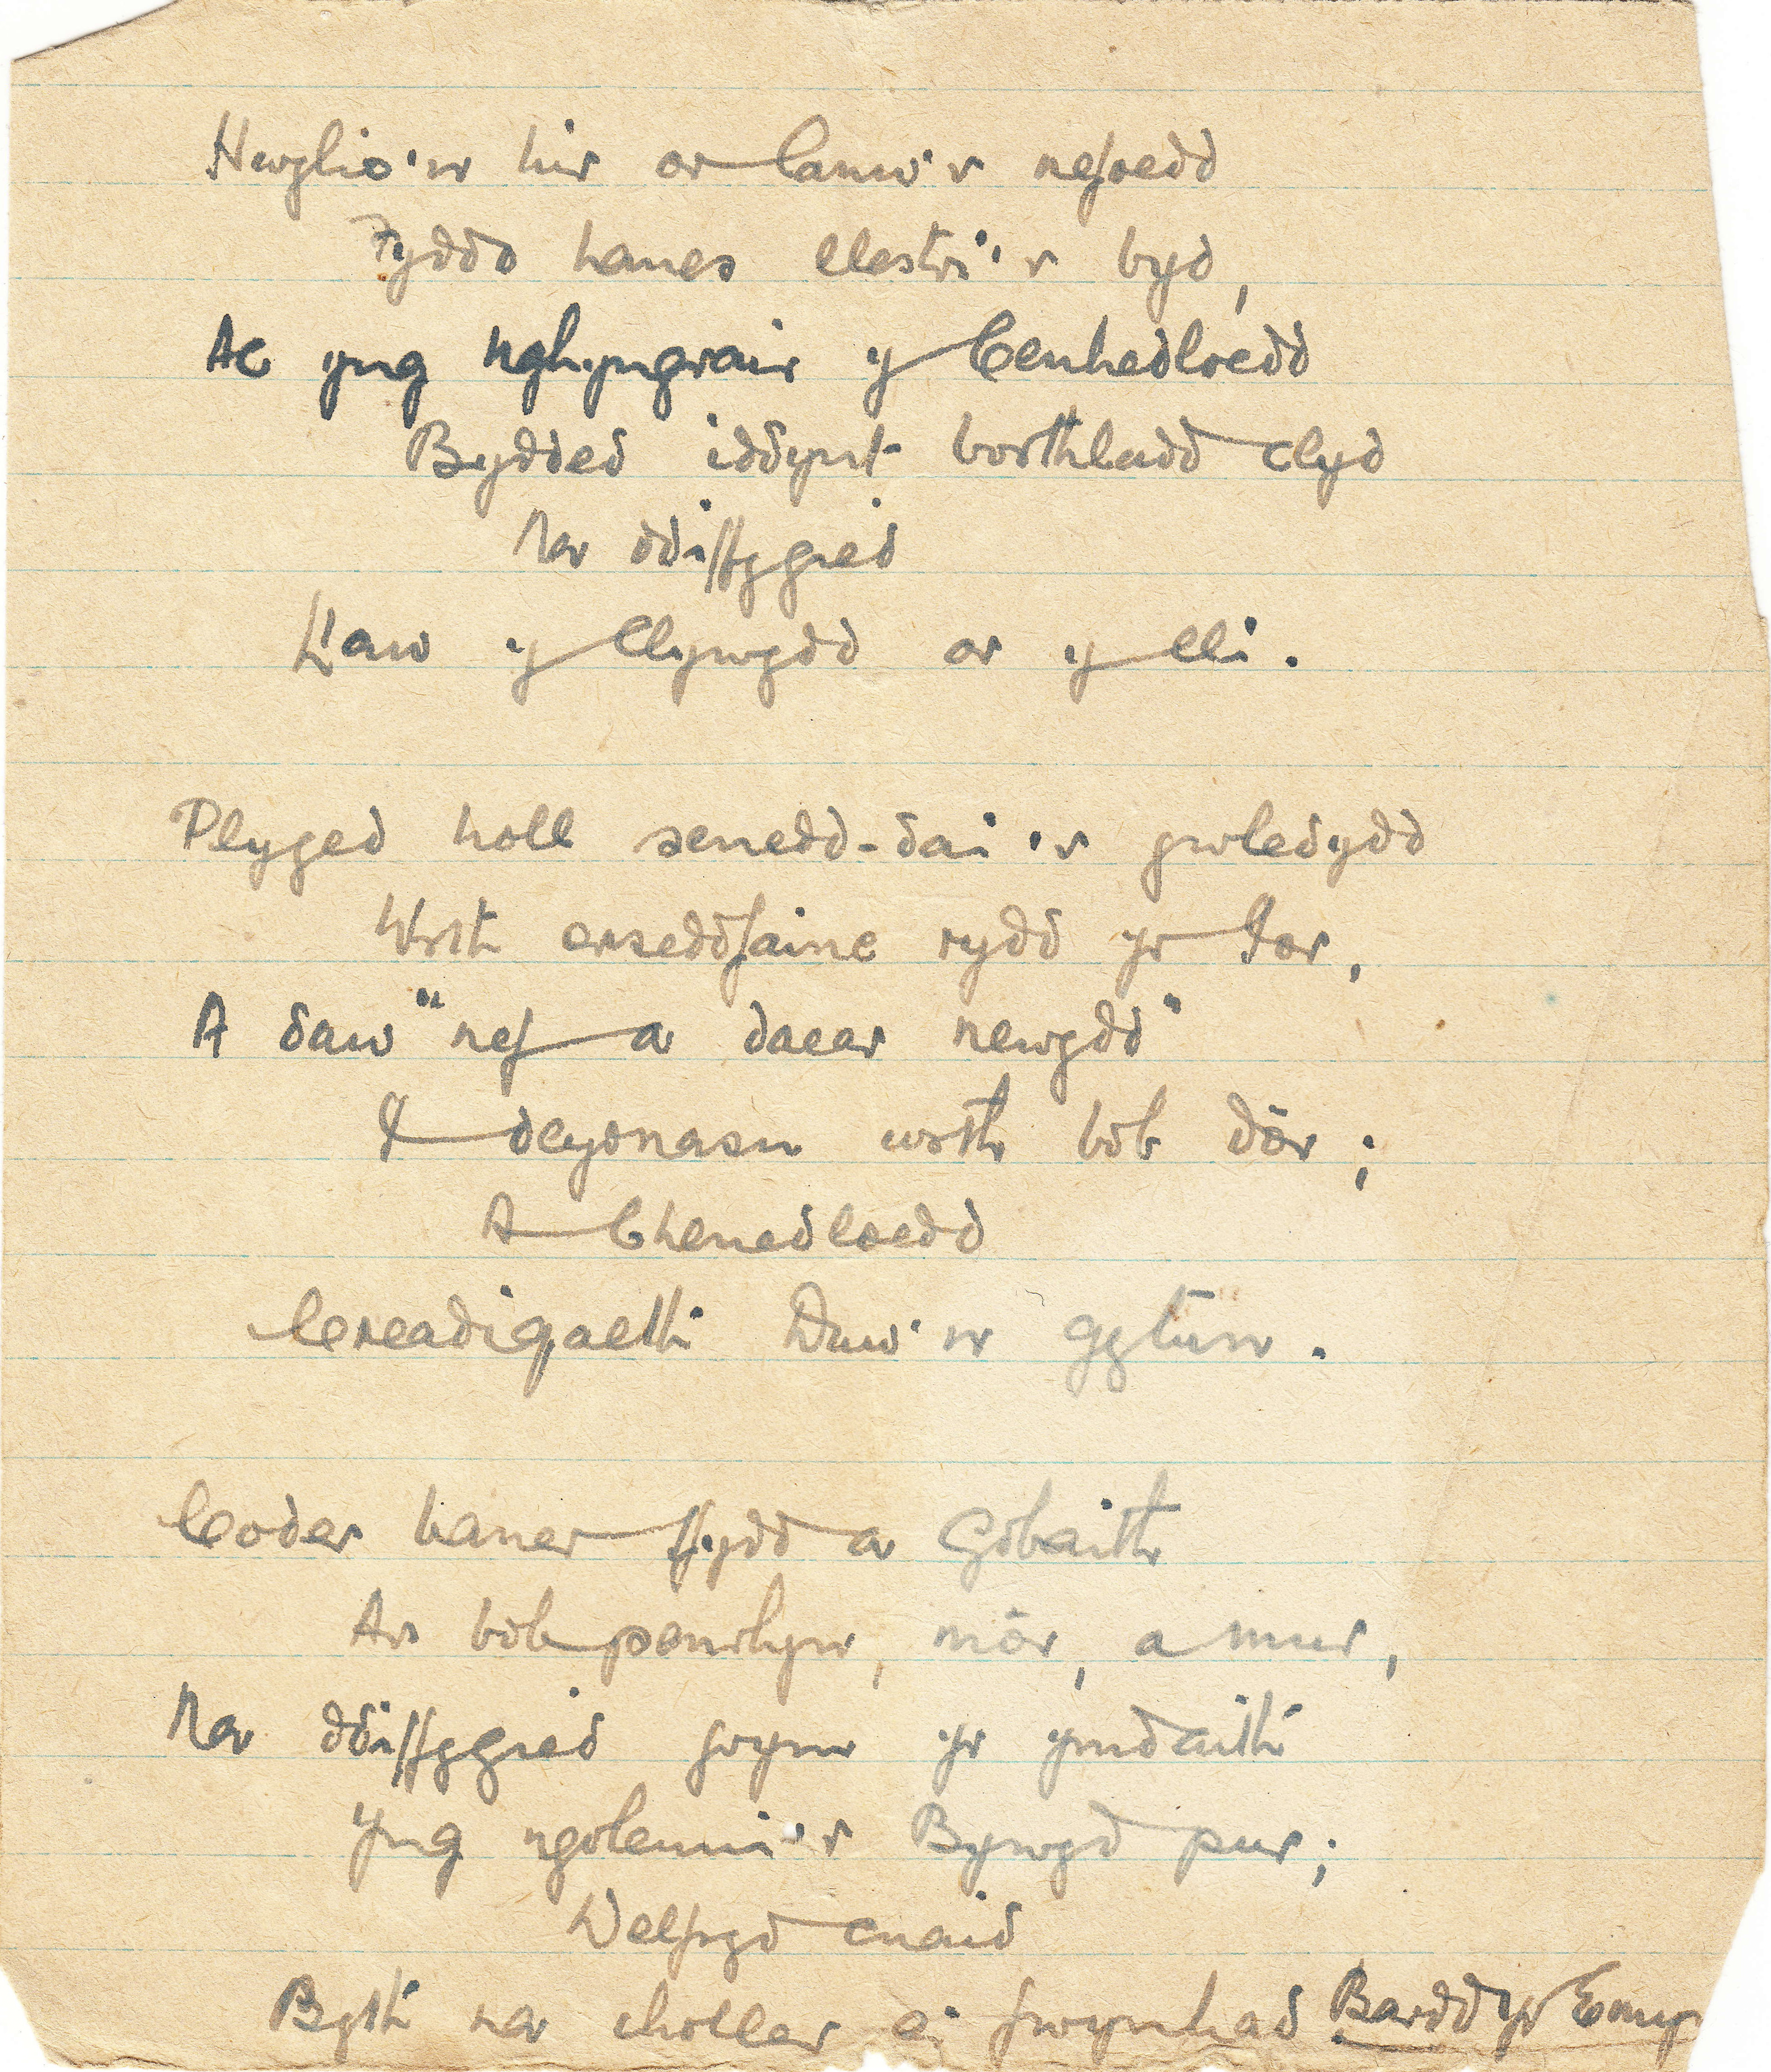 Hwylio'n hir ar lanw'r nefoedd
Fyddo hanes llestri'r byd,
Ac yng nghyngrair y Cenhedloedd
Bydded iddynt borthladd clyd
Na ddiffygied
Llaw y Llywydd ar y lli.
Plyged holl senedd-dai'r gwledydd
Wrth orseddfainc rydd yr Iôr,
A daw "nef a daear newydd"
I deyrnasu wrth bob dôr;
A Chenedloedd
Creadigaeth Duw'n gytun.
Coder baner ffydd a Gobaith
Ar bob penrhyn, môr, a mur,
Na ddiffygied ar yr ymdaith
Yng ngoleuni'r Bywyd pur;
Delfryd enaid
Byth na choller ei fwynhad Bardd yr